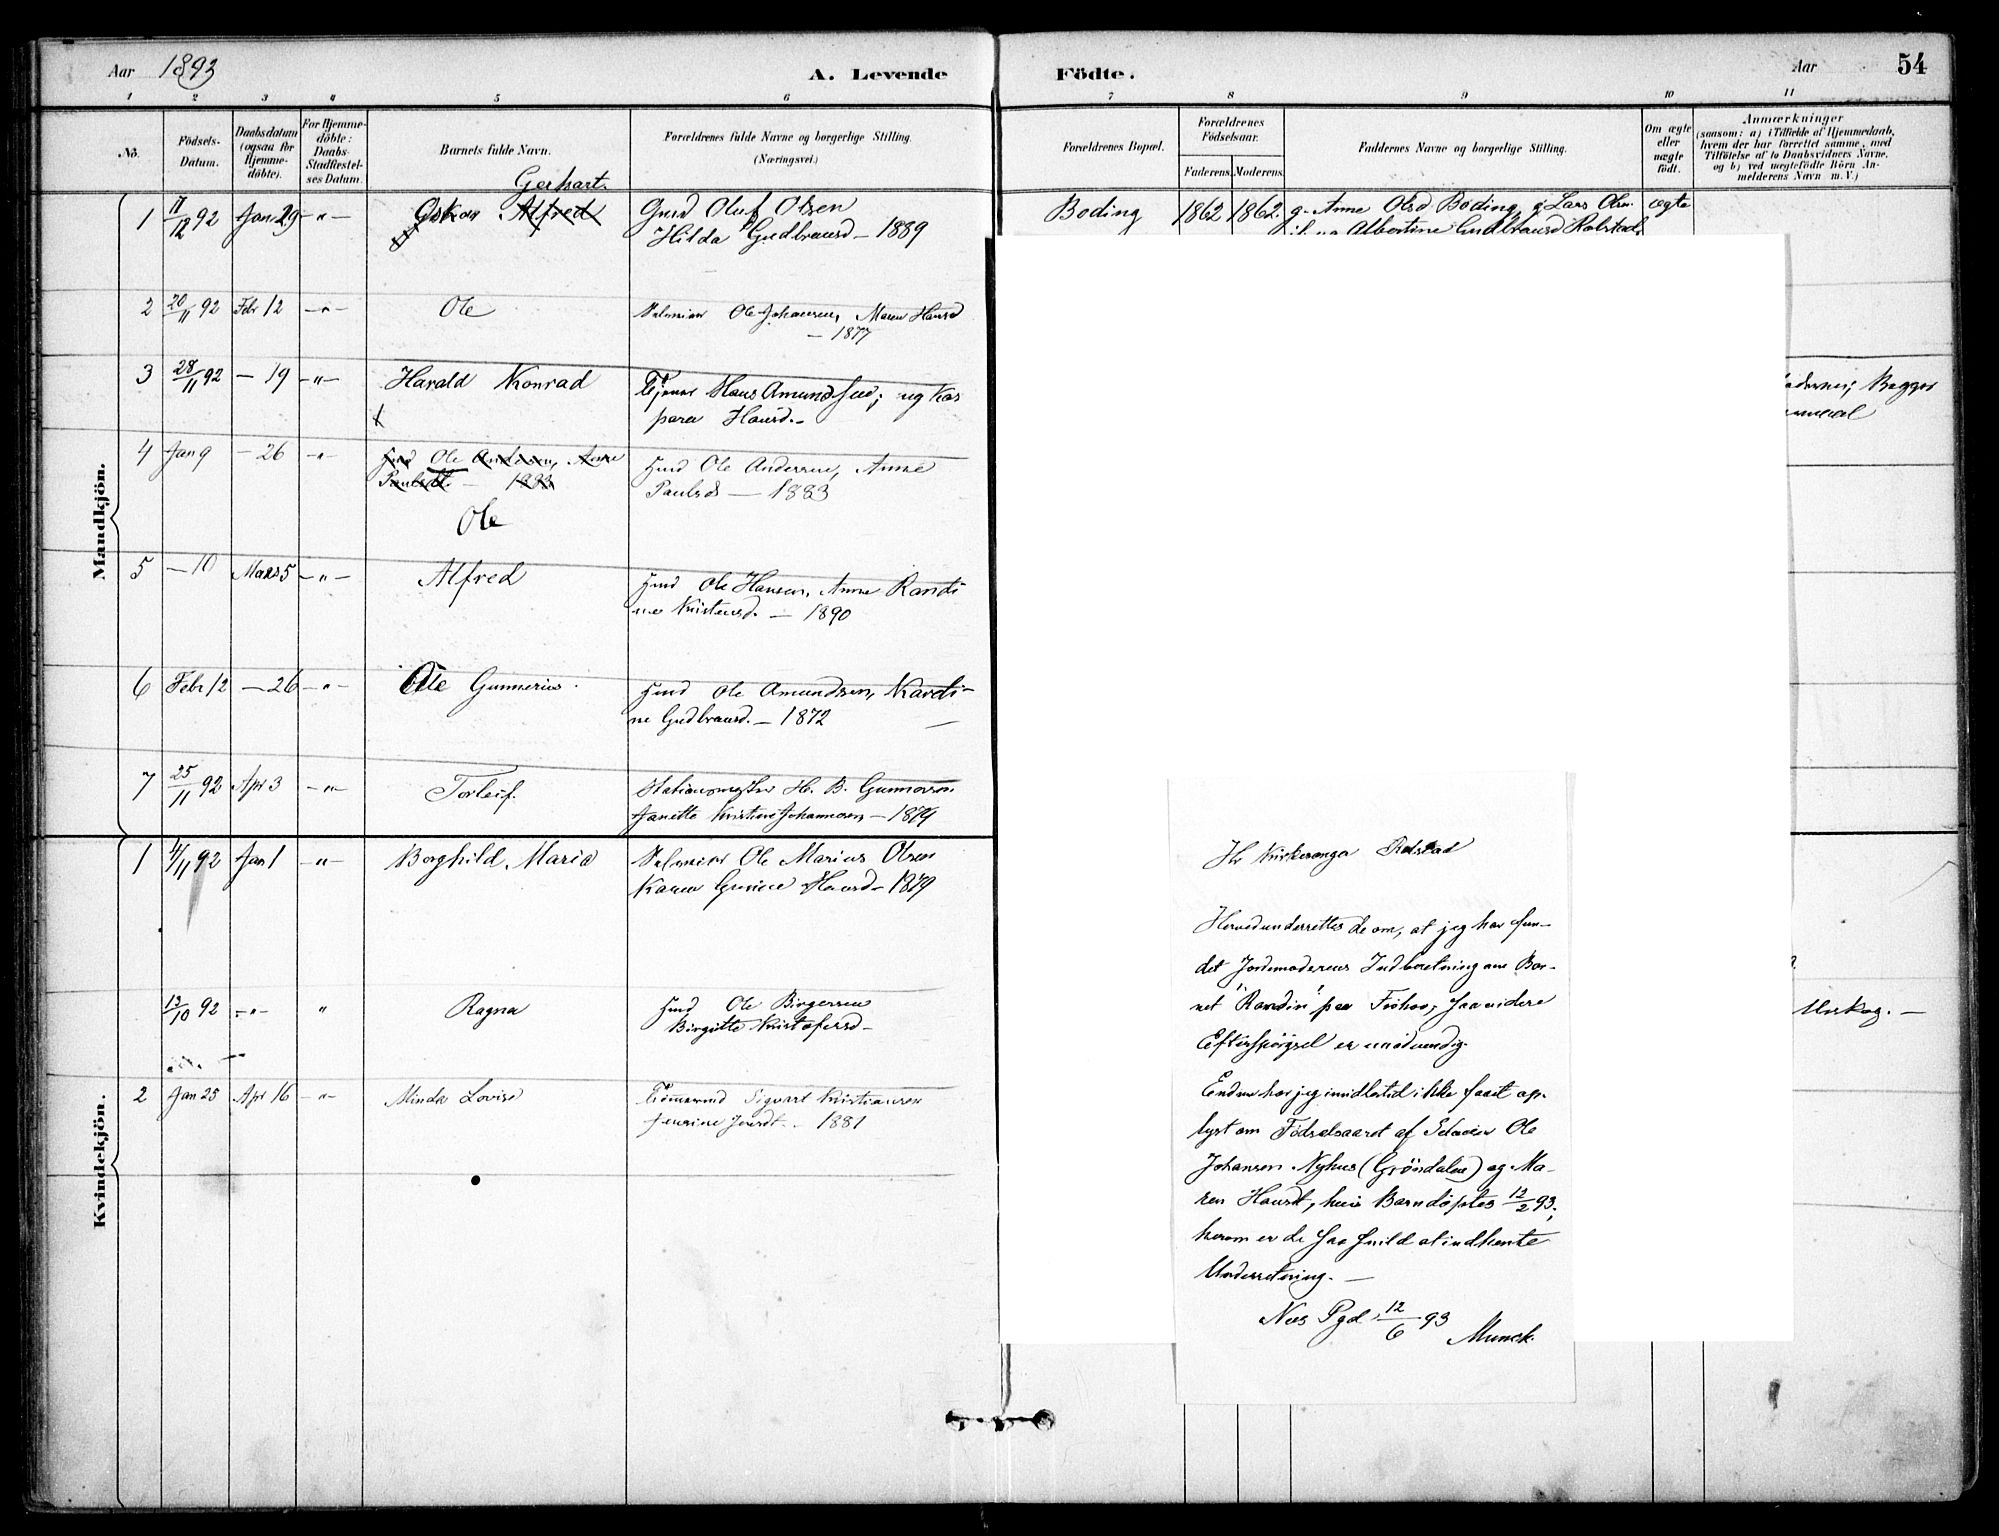 Aar 1893
A. Levende
Födte.
Aar
54
1 2 3 4 5 6 7 8 9 10 11
No.
Födsels-
Datum.
Daabsdatum
(ogsaa for
Hjemme-
döbte).
For Hjemme-
döbte:
Daabs-
Stadfæstel-
ses Datum.
Barnets fulde Navn.
Forældrenes fulde Navne og borgerlige Stilling.
(Næringsvei.)
Forældrenes Bopæl.
Forældrenes
Födselsaar.
Faderens. Moderens.
Faddernes Navne og borgerlige Stilling.
Om ægte
eller
uægte
födt.
Anmærkninger
(saasom: a) i Tilfælde af Hjemmedaab,
hvem der har forrettet samme, med
Tilföielse af to Daabsvidners Navne,
og b) ved uægtefödte Börn An-
melderens Navn m. V.)
Mandkjön.
Gerhart.
1 17/12 92 Jan 29 -"- Oskar Alfred Gmd Oluf Olsen Boding 1862 1862. g. Anne Olsd. Boding, g Lars Olsn. ægte
Hilda Gudbransd - 1889
Albertine Gudbransd
2 20/11 92 Febr 12 -"- Ole Ole Johansen, Maren Hansd
- 1877
3 28/11 92 - 19 -"- Harald Konrad Tjener Hans Amunds; ug Kas
para Hansd.-
4 Jan 9 - 26 -"- Hmd Ole Andersen, Anne Hmd Ole Andersen, Anne
Paulsdt. - 1883 Paulsd - 1883
Ole
5 - 10 Mars 5 -"- Alfred Hmd Ole Hansen, Anne Randi
ne Kristensd. - 1890
6 Febr 12 - 26 -"- Ole Gunnerius. Hmd Ole Amundsen, Kardi-
ne Gudbransd. - 1872
7 25/11 92 Apr 3 -"- Torleif. Stationsmester H. B. Gunnersen
Janette Kristine Johannesen - 1879
Kvindekjön.
1 4/11 92 Jan 1 -"- Borghild Marie Ole Marius Olsen
Karen Gunine Hansd - 1879
13/10 92 -"- " Ragna Hmd Ole Birgersen
Birgitte Kristofersd -
2 Jan 25 Apr 16 -"- Minda Lovise Tömmermd Sigvart Kristiansen
Jensine - 1881
Hr Kirkesanger Rolstad
Herved underrettes De om, at jeg har fun-
det Jordmoderens Indberetning om Bar-
net "Randin" paa Frohov, saa videre
Efterspörgsel er unödvendig.
Endnu har jeg imidlertid ikke faaet op-
lyst om Födselsaaret af Selveier Ole
Johansen Nyhus (Gröndalen) og Ma-
ren Hansdt, hvis Barn döptes 12/2 93;
herom er De saa snild at indhente
Underretning. -
Nes Pgd. 12/6 93
Munck.